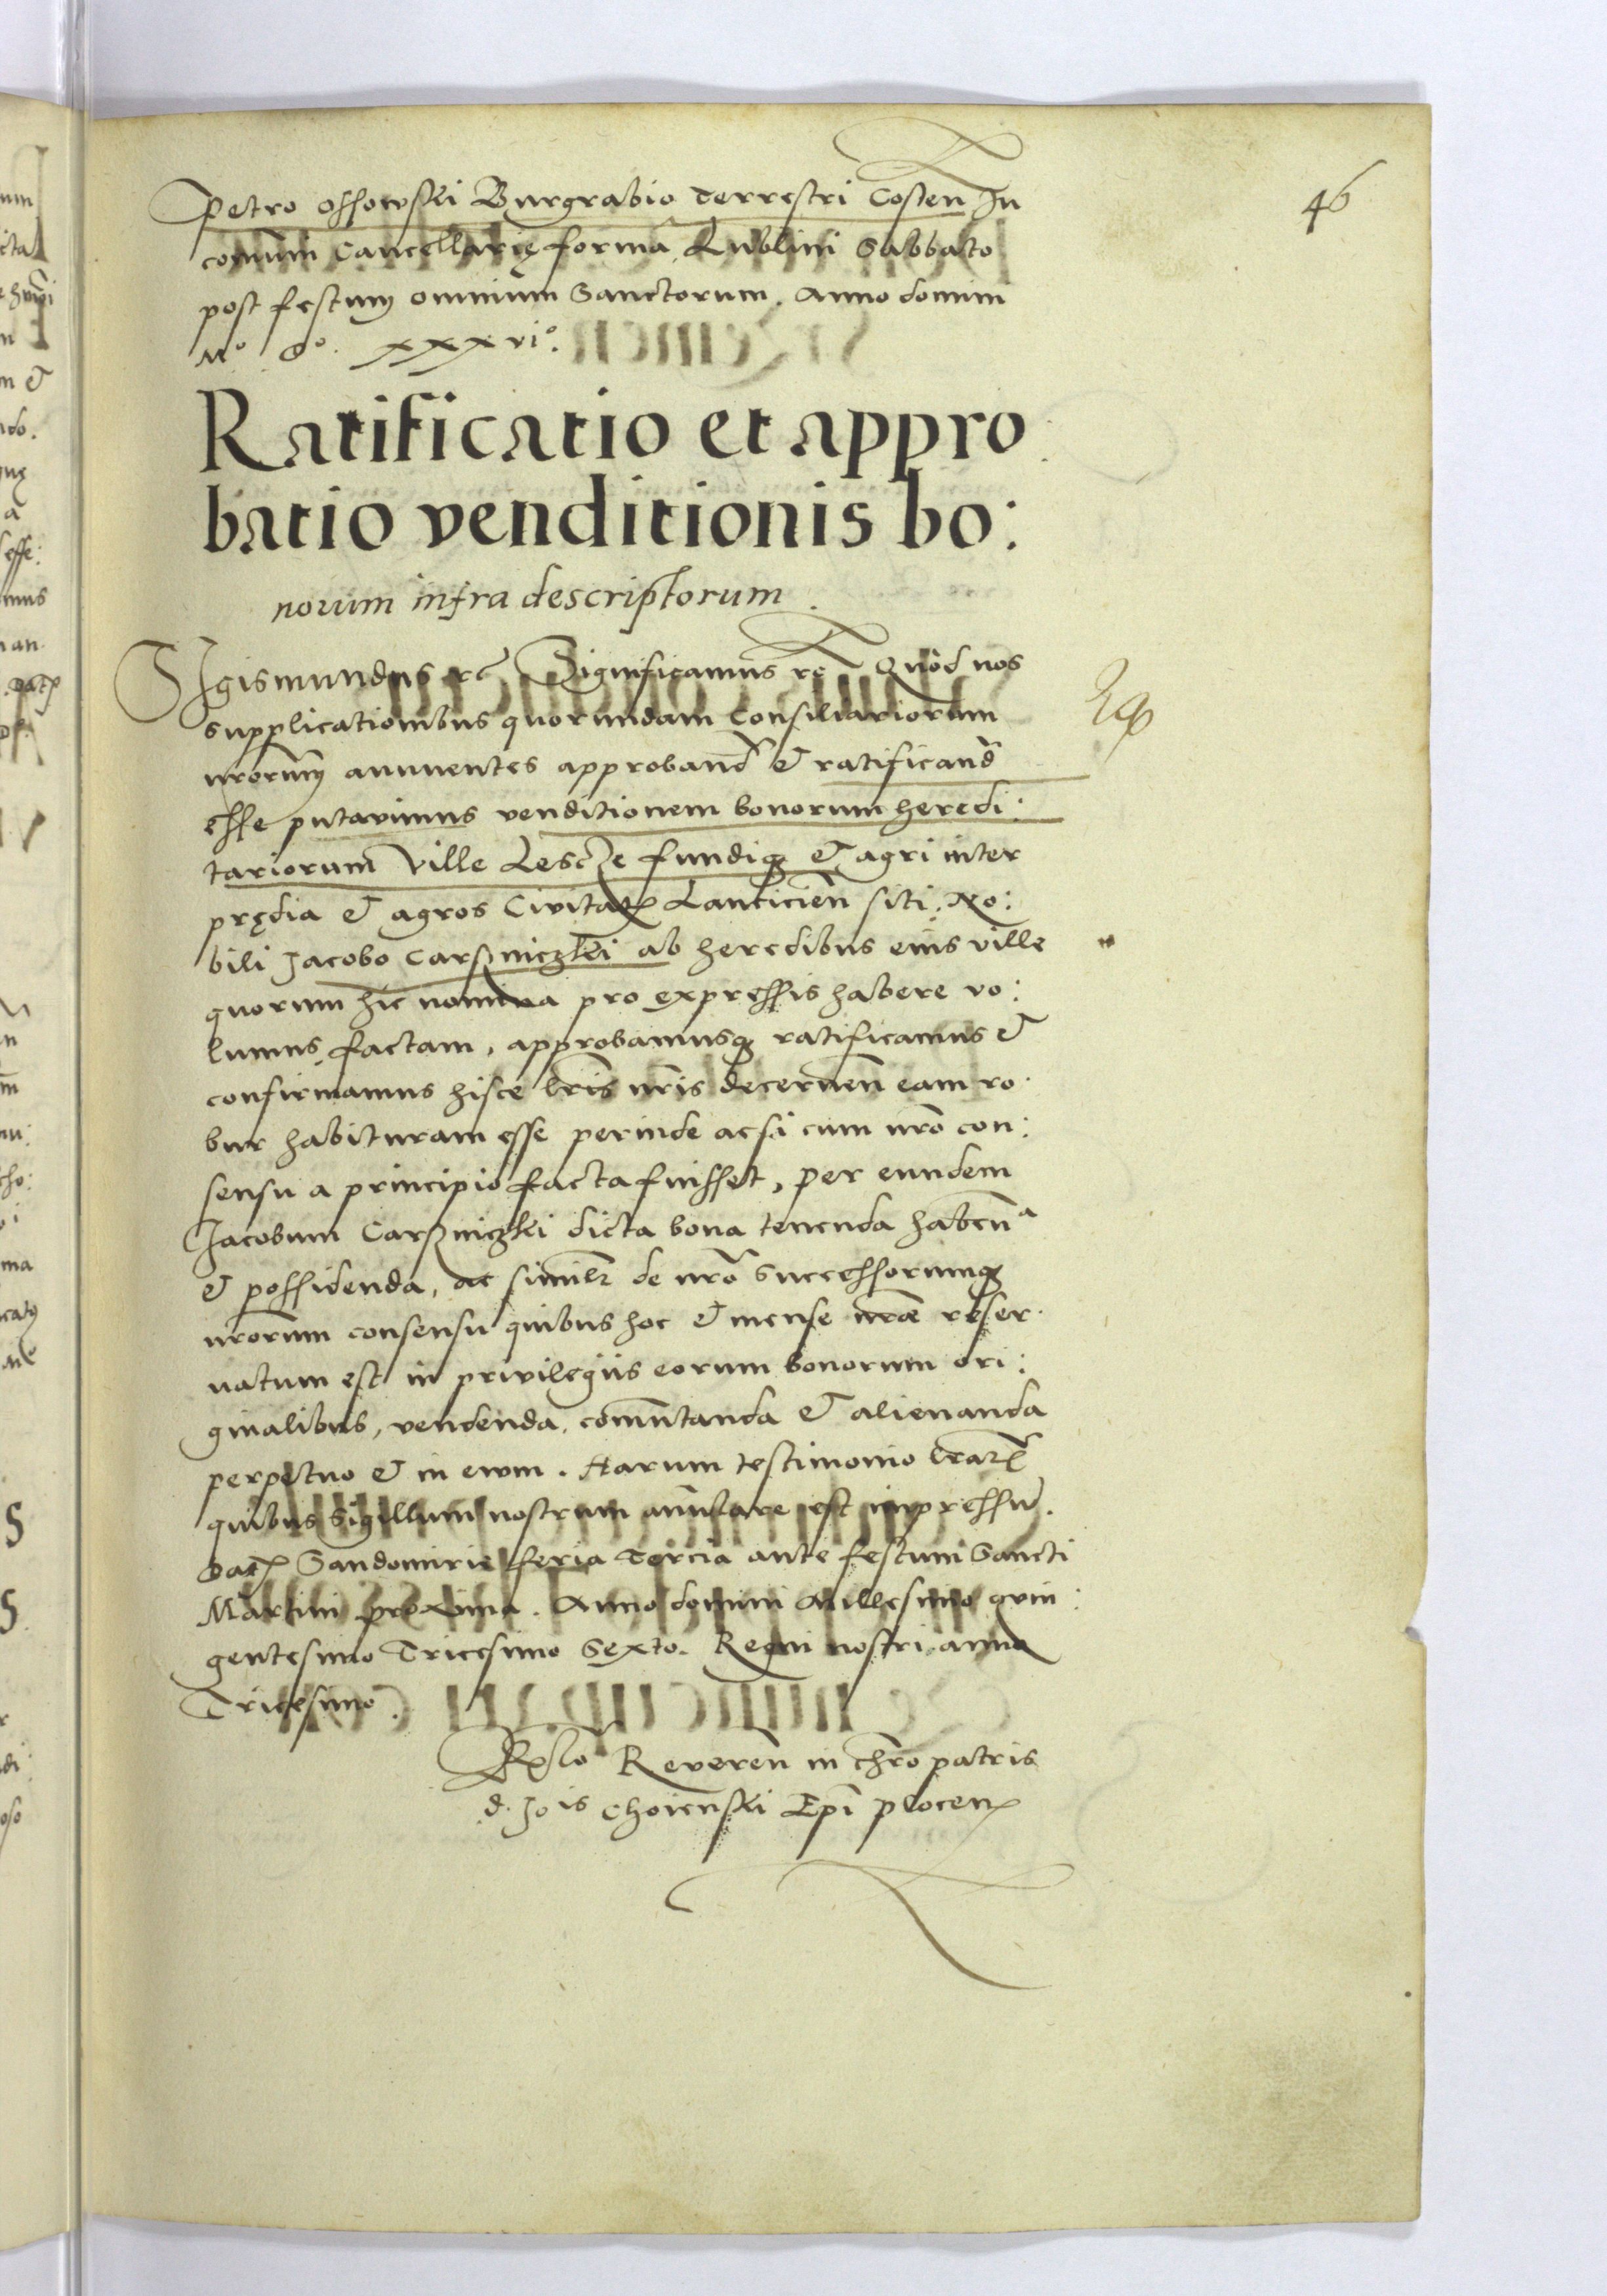 46
Petro Ossowski Burgrabio Terrestri Costen In
comuni Cancellarię forma, Lublini Sabbato
post festum omnium Sanctorum. Anno domini
Mº. Dº. xxxviº.
Ratificatio et appro
batio venditionis bo:
norum infra descriptorum.
Sigismundus rc̄ Significamus rc̄ Quod nos
supplicationibus quorundam Consiliariorum
nr̄orum annuentes approband̄ & ratificand̄
esse putavimus venditionem bonorum heredi:
tariorum Ville Lescze fundiq₃ & agri inter
prędia & agros Civitatꝭ Lanticien̄ siti. No:
bili Jacobo Carszniczki ab heredibus eius ville
quorum hic nomina pro expressis habere vo:
lumus factam, approbamusq₃ ratificamus &
confirmamus hisce lr̄is nr̄is decernen̄ eam ro
bur habituram esse perinde acsi cum nr̄o con:
sensu a principio facta fuisset, per eundem
Jacobum Carszniczki dicta bona tenenda habenᵃ
& possidenda, ac similr̄ de nr̄o Successorumq₃
nr̄orum consensu quibus hoc & mense nr̄ae reser
uatum est in privilegiis eorum bonorum ori:
ginalibus, vendenda, comutanda & alienanda
perpetuo & in ewm. Harum testimonio lr̄arꝭ
quibus Sigillum nostrum annulare est impressū.
Datꝭ Sandomirie feria Tercia ante festum Sancti
Martini proxima. Anno domini Millesimo quin:
gentesimo Tricesimo Sexto. Regni nostri anno
Tricesimo.
Rꝭlō Reveren̄ in chr̄o patris
d. Jois Choienski Epī plocenꝭ